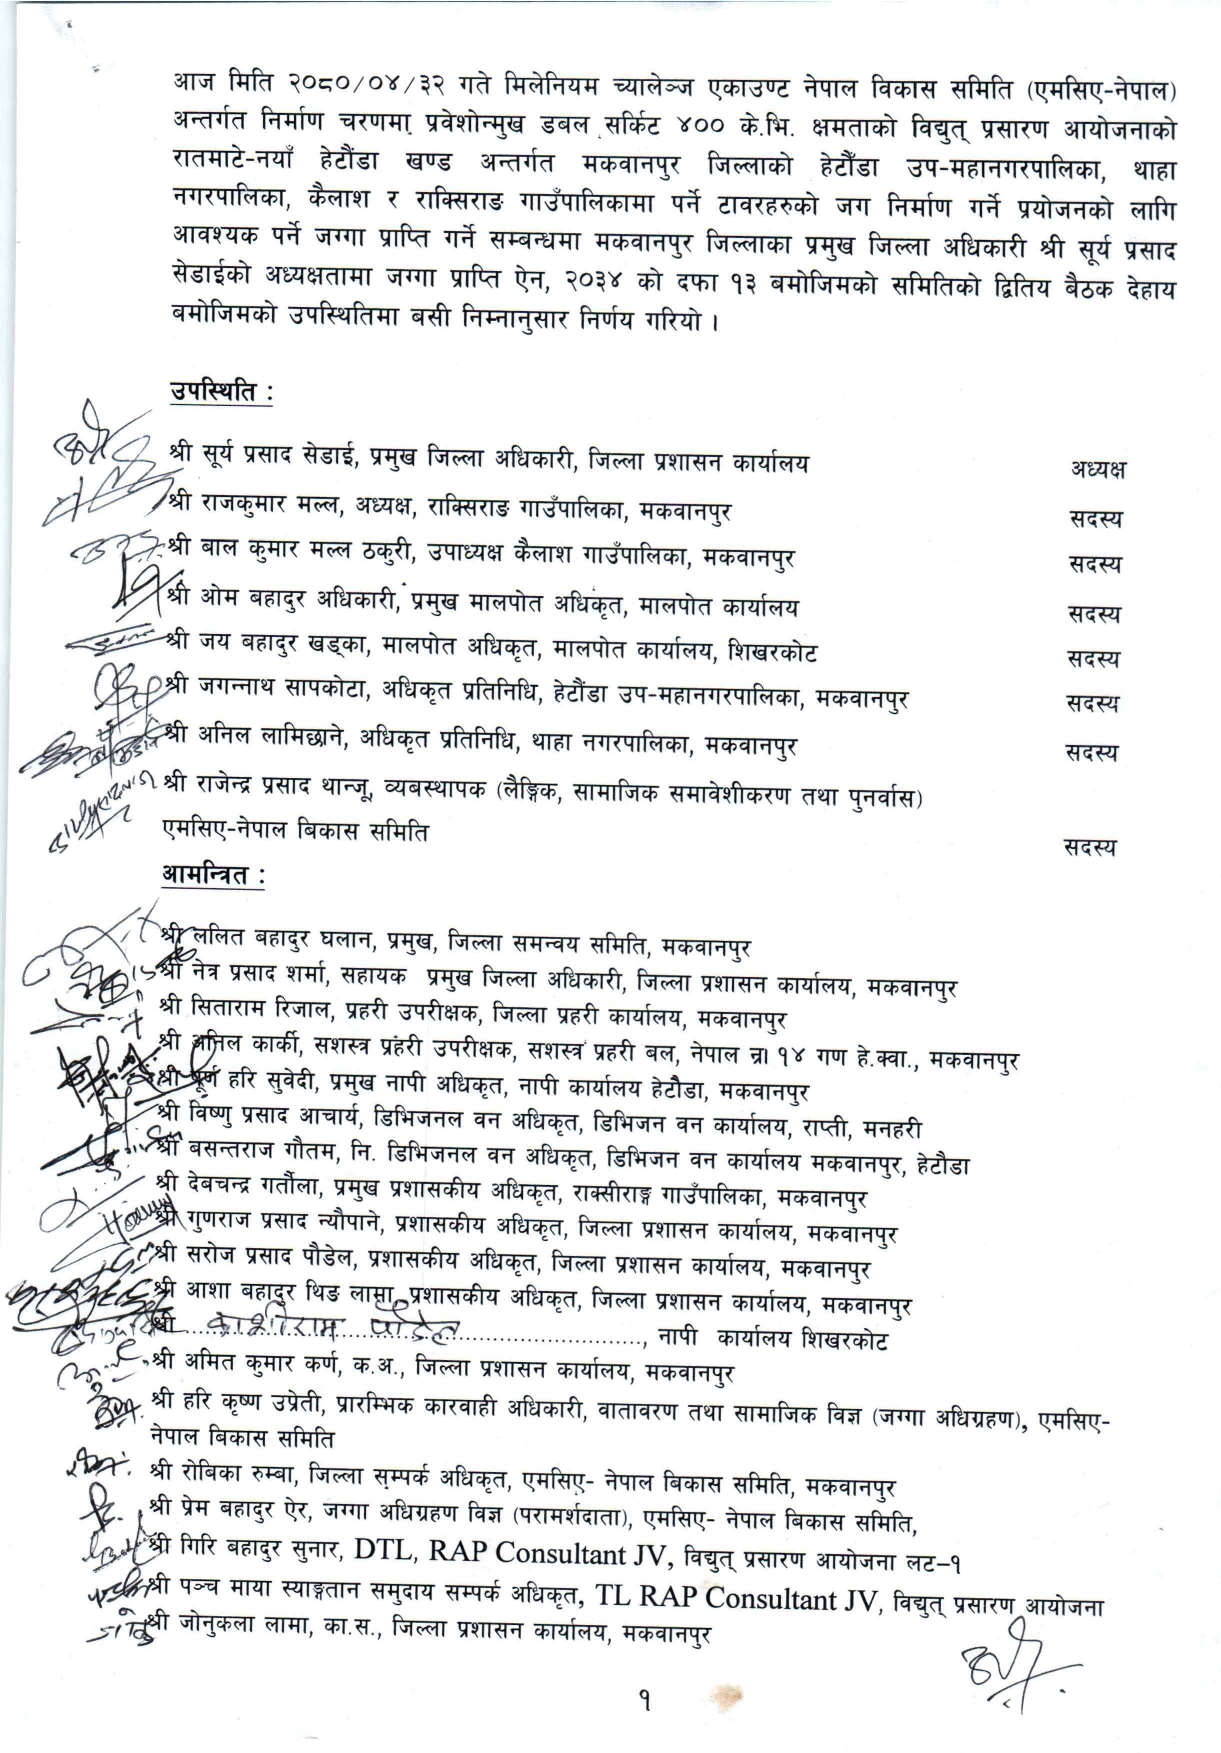 आज मिति २०८०/०४/३२ गते मिलेनियम च्यालेञ्ज एकाउण्ट नेपाल विकास समिति (एमसिए-नेपाल)
अन्तर्गत निर्माण चरणमा प्रवेशोन्मुख डबल सर्किट ४०० के.भि. क्षमताको विद्युत् प्रसारण आयोजनाको
रातमाटे-नयाँ हेटौंडा खण्ड अन्तर्गत मकवानपुर जिल्लाको हेटौँडा उप-महानगरपालिका, थाहा
नगरपालिका, कैलाश र राक्सिराङ गाउँपालिकामा पर्ने टावरहरुको जग निर्माण गर्ने प्रयोजनको लागि
आवश्यक पर्ने जग्गा प्राप्ति गर्ने सम्बन्धमा मकवानपुर जिल्लाका प्रमुख जिल्ला अधिकारी श्री सूर्य प्रसाद
सेडाईको अध्यक्षतामा जग्गा प्राप्ति ऐन, २०३४ को दफा १३ बमोजिमको समितिको द्वितिय बैठक देहाय
बमोजिमको उपस्थितिमा बसी निम्नानुसार निर्णय गरियो ।
उपस्थिति :
श्री सूर्य प्रसाद सेडाई, प्रमुख जिल्ला अधिकारी, जिल्ला प्रशासन कार्यालय अध्यक्ष
श्री राजकुमार मल्ल, अध्यक्ष, राक्सिराङ गाउँपालिका, मकवानपुर सदस्य
श्री बाल कुमार मल्ल ठकुरी, उपाध्यक्ष कैलाश गाउँपालिका, मकवानपुर सदस्य
श्री ओम बहादुर अधिकारी, प्रमुख मालपोत अधिकृत, मालपोत कार्यालय सदस्य
श्री जय बहादुर खड्का, मालपोत अधिकृत, मालपोत कार्यालय, शिखरकोट सदस्य
श्री जगन्नाथ सापकोटा, अधिकृत प्रतिनिधि, हेटौंडा उप-महानगरपालिका, मकवानपुर सदस्य
श्री अनिल लामिछाने, अधिकृत प्रतिनिधि, थाहा नगरपालिका, मकवानपुर सदस्य
श्री राजेन्द्र प्रसाद थान्जू, व्यबस्थापक (लैङ्गिक, सामाजिक समावेशीकरण तथा पुनर्वास)
एमसिए-नेपाल बिकास समिति सदस्य
आमन्त्रित :
श्री ललित बहादुर घलान, प्रमुख, जिल्ला समन्वय समिति, मकवानपुर
श्री नेत्र प्रसाद शर्मा, सहायक प्रमुख जिल्ला अधिकारी, जिल्ला प्रशासन कार्यालय, मकवानपुर
श्री सिताराम रिजाल, प्रहरी उपरीक्षक, जिल्ला प्रहरी कार्यालय, मकवानपुर
श्री अनिल कार्की, सशस्त्र प्रहरी उपरीक्षक, सशस्त्र प्रहरी बल, नेपाल नं। १४ गण हे.क्वा., मकवानपुर
श्री पूर्ण हरि सुवेदी, प्रमुख नापी अधिकृत, नापी कार्यालय हेटौडा, मकवानपुर
श्री विष्णु प्रसाद आचार्य, डिभिजनल वन अधिकृत, डिभिजन वन कार्यालय, राप्ती, मनहरी
श्री बसन्तराज गौतम, नि. डिभिजनल वन अधिकृत, डिभिजन वन कार्यालय मकवानपुर, हेटौडा
श्री देबचन्द्र गर्तौला, प्रमुख प्रशासकीय अधिकृत, राक्सीराङ्ग गाउँपालिका, मकवानपुर
श्री गुणराज प्रसाद न्यौपाने, प्रशासकीय अधिकृत, जिल्ला प्रशासन कार्यालय, मकवानपुर
श्री सरोज प्रसाद पौडेल, प्रशासकीय अधिकृत, जिल्ला प्रशासन कार्यालय, मकवानपुर
श्री आशा बहादुर थिङ लामा, प्रशासकीय अधिकृत, जिल्ला प्रशासन कार्यालय, मकवानपुर
श्री काशीराम पौडेल, नापी कार्यालय शिखरकोट
श्री अमित कुमार कर्ण, क.अ., जिल्ला प्रशासन कार्यालय, मकवानपुर
श्री हरि कृष्ण उप्रेती, प्रारम्भिक कारवाही अधिकारी, वातावरण तथा सामाजिक विज्ञ (जग्गा अधिग्रहण), एमसिए-
नेपाल बिकास समिति
श्री रोबिका रुम्बा, जिल्ला सम्पर्क अधिकृत, एमसिए- नेपाल बिकास समिति, मकवानपुर
श्री प्रेम बहादुर ऐर, जग्गा अधिग्रहण विज्ञ (परामर्शदाता), एमसिए- नेपाल बिकास समिति,
श्री गिरि बहादुर सुनार, DTL, RAP Consultant JV, विद्युत् प्रसारण आयोजना लट-१
श्री पञ्च माया स्याङ्गतान समुदाय सम्पर्क अधिकृत, TL RAP Consultant JV, विद्युत् प्रसारण आयोजना
श्री जोनुकला लामा, का.स., जिल्ला प्रशासन कार्यालय, मकवानपुर
१